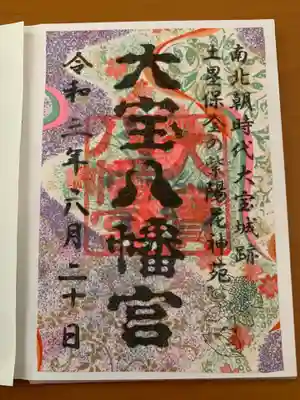 南北朝時代大宝城跡
土塁保全の紫陽花神苑
大宝八幡宮
令和二年八月二十日